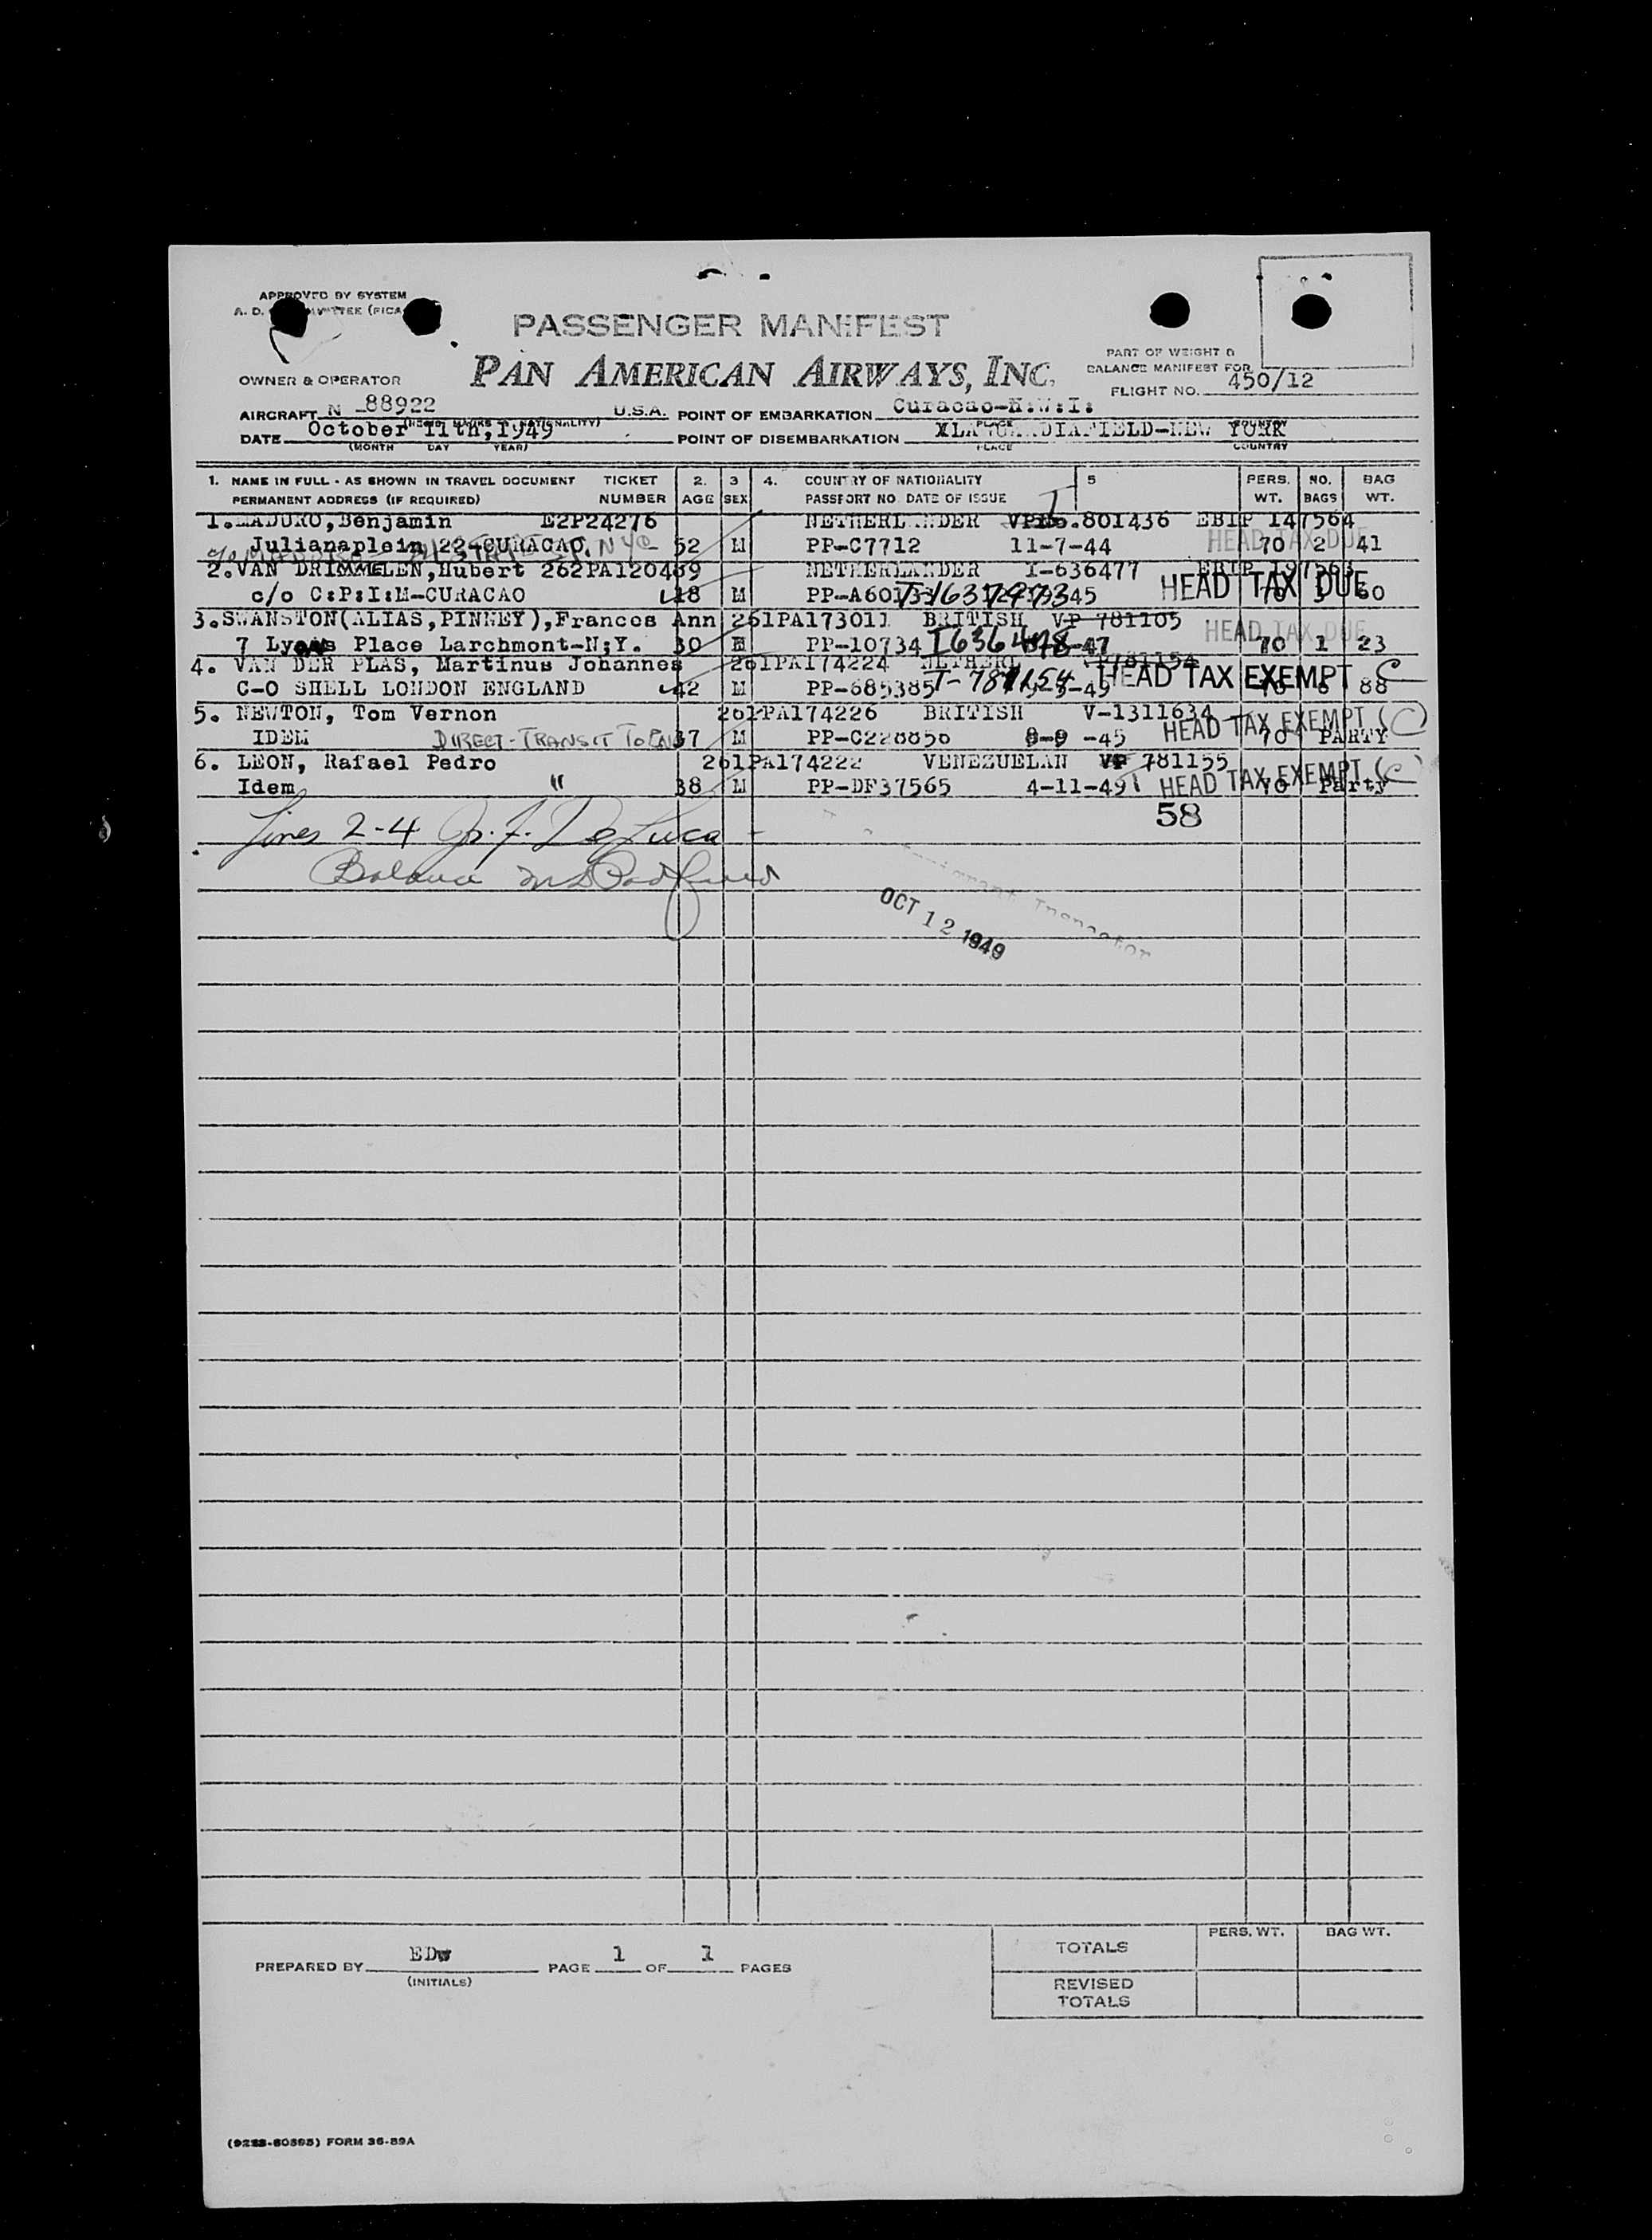 APPROVED BY SYSTEM
PASSENGER MANIFEST
PAN AMERICAN AIRWAYS, INC.
PART OF WEIGHT &
BALANCE MANIFEST FOR
FLIGHT NO. 450/12
OWNER & OPERATOR
AIRCRAFT N -88922 U.S.A. POINT OF EMBARKATION Curacao-N:W:I:
DATE October 11th,1949 POINT OF DISEMBARKATION YORK
(MONTH DAY YEAR) PLACE COUNTRY
1. NAME IN FULL - AS SHOWN IN TRAVEL DOCUMENT TICKET 2. 3 4. COUNTRY OF NATIONALITY 5 PERS. NO. BAG
PERMANENT ADDRESS (IF REQUIRED) NUMBER AGE SEX PASSPORT NO. DATE OF ISSUE WT. BAGS WT.
1.MADURO,Benjamin E2P24276 NETHERLANDER 801436 EBTP 147564
Julianaplein 22-CURACAO. NYC 52 M PP-C7712 11-7-44 HEAD TAX DUE 70 2 41
2.VAN DRIMMELEN,Hubert 262PA120469 NETHERLANDER I-636477
c/o C:P:I:M-CURACAO 18 M HEAD TAX DUE
3.SWANSTON(ALIAS,PINNEY),Frances Ann 261PA173011 BRITISH VP 781105
7 Lyons Place Larchmont-N;Y. 30 PP-10734 I636478 -47 HEAD TAX DUE 70 1 23
4. VAN DER PLAS, Martinus Johannes 261PA174224 NETHERL 781154
C-O SHELL LONDON ENGLAND 42 M PP-685385 T-781154 HEAD TAX EXEMPT C 88
5. NEWTON, Tom Vernon 261PA174226 BRITISH V-1311634
IDEM DIRECT-TRANSIT TO ENG 37 M PP-C228856 8-9 -45 HEAD TAX EXEMPT (C) 70 PARTY
6. LEON, Rafael Pedro 261PA174222 VENEZUELAN VP 781155
Idem " 38 M PP-DF37565 4-11-49 HEAD TAX EXEMPT (C) 70 Party
58
Lines 2-4 De Luca
Balance
Immigrant Inspector
OCT 12 1949
PREPARED BY EDw PAGE 1 OF 1 PAGES
(INITIALS)
PERS. WT. BAG WT.
TOTALS
REVISED
TOTALS
(9288-60595) FORM 36-89A